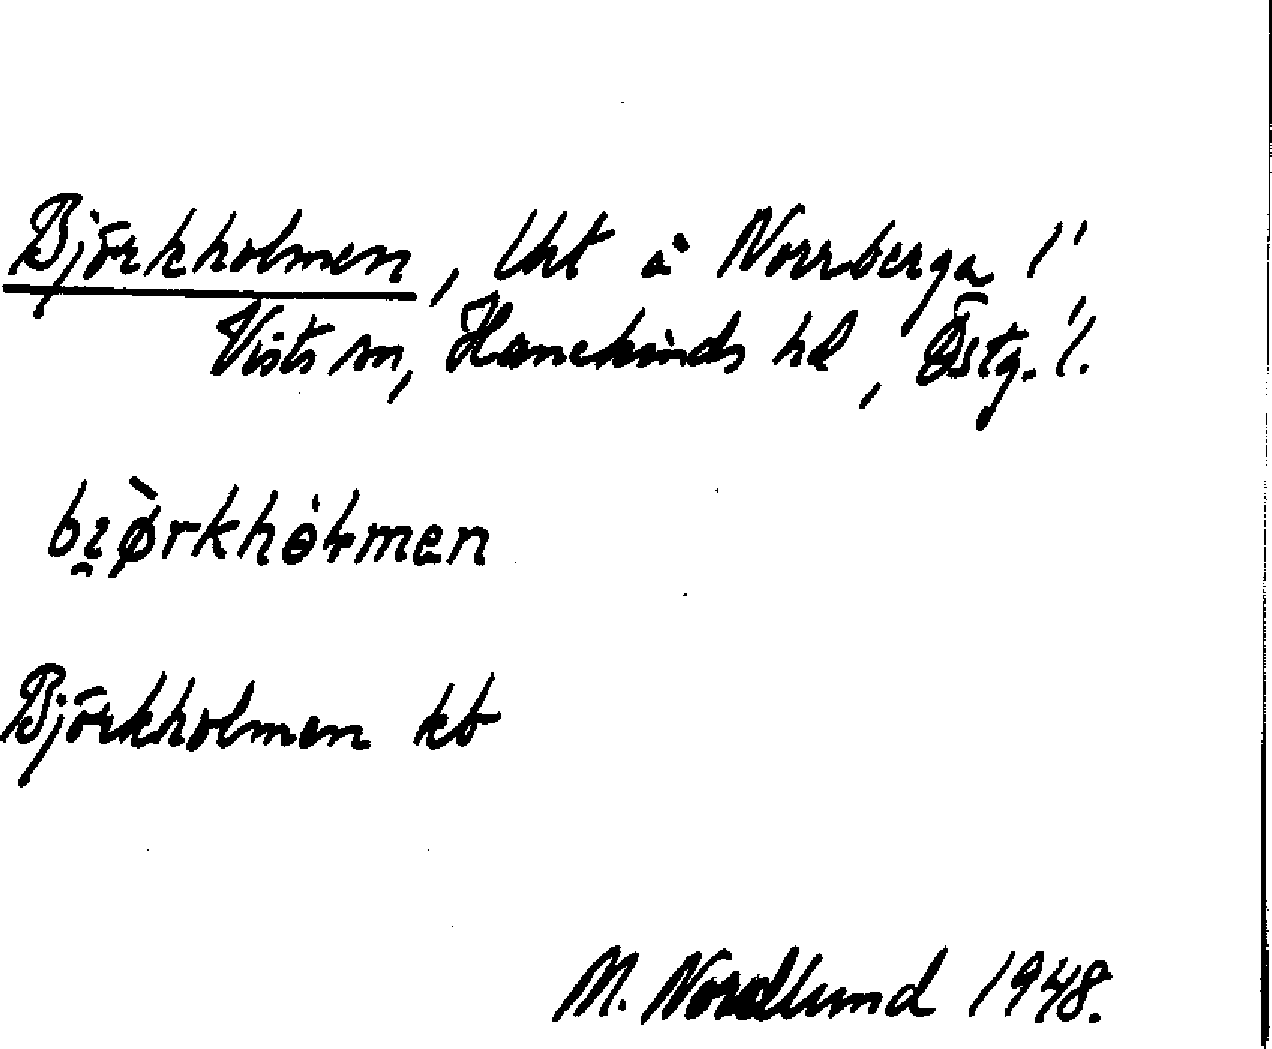 Björkholmen, lht å Norrberga 1/1
Vists sn, Hanekinds hd, Östg. /.
bjørkhòlmen
Björkholmen kb
M. Nordlund 1948.